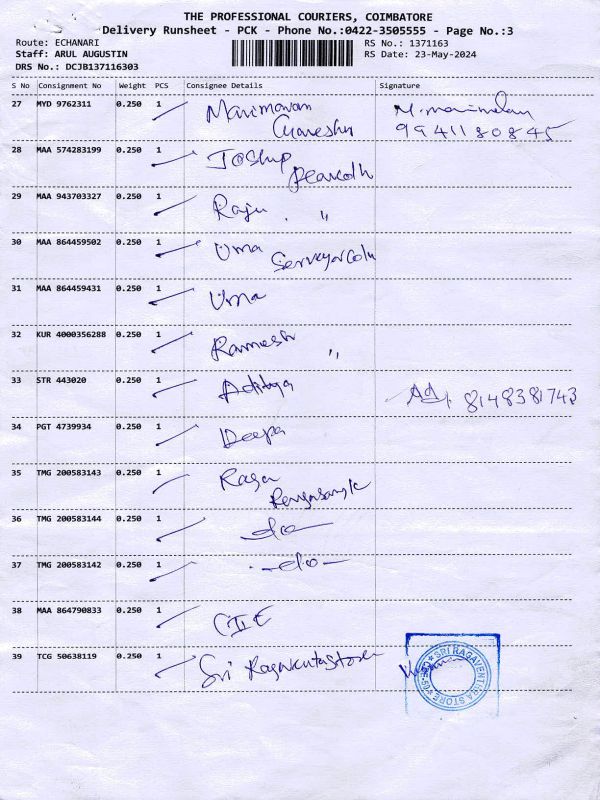 THE PROFESSIONAL COURIERS, COIMBATORE
Delivery Runsheet - PCK - Phone No.:0422-3505555 - Page No.:3
Route: ECHANARI RS No.: 1371163
Staff: ARUL AUGUSTIN RS Date: 23-May-2024
DRS No.: DCJB137116303
S No Consignment No Weight PCS Consignee Details Signature
27 MYD 9762311 0.250 1
9941180845
28 MAA 574283199 0.250 1
29 MAA 943703327 0.250 1 Raju . "
30 MAA 864459502 0.250 1 Uma
31 MAA 864459431 0.250 1 Uma
32 KUR 4000356288 0.250 1 Ramesh "
33 STR 443020 0.250 1 Adithya Ad 8148381743
34 PGT 4739934 0.250 1 Deepa
35 TMG 200583143 0.250 1 Raga
36 TMG 200583144 0.250 1 -do-
37 TMG 200583142 0.250 1 -do-
38 MAA 864790833 0.250 1
39 TCG 50638119 0.250 1 Sri
SRI RAGAVENTHRA STORE